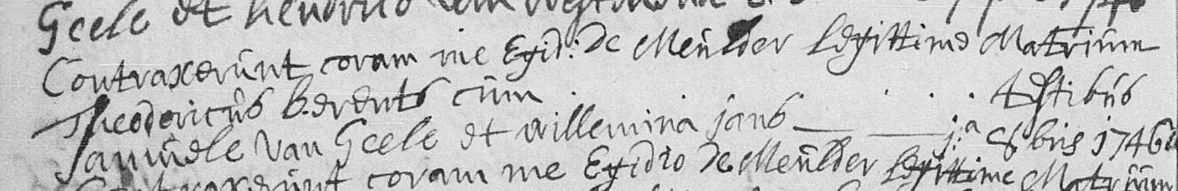 Geele et Henrico van
Contraxerunt coram me Egid: De Meulder legittime Matrium
Theodoricus berents cum . . . . testibus
Samuele van Geele et willemina jans — — j:a 8bris 1746
Contraxerunt coram me Egidio De Meulder legittime Matrium